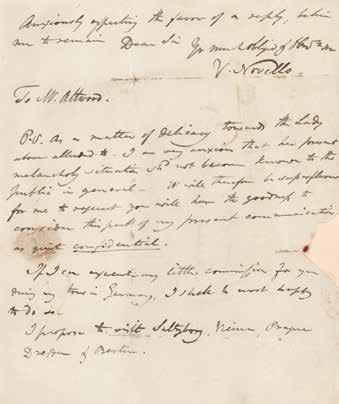 Anxiously expecting the favor of a reply, believe
me to remain Dear Sir Yr much obliged & Obd
V. Novello.
To Mr. Attwood.
P.S. As a matter of delicacy towards the Lady
above alluded to. I am very anxious that her present
melancholy situation shd not become known to the
public in general - it will therefore be superfluous
for me to request you will have the goodness to
consider this part of my present communication
as quite confidential.
If I can execute any little commission for you
during my tour in Germany, I shall be most happy
to do so.
I propose to visit Saltzburg, Vienna, Prague
Dresden & Berlin.